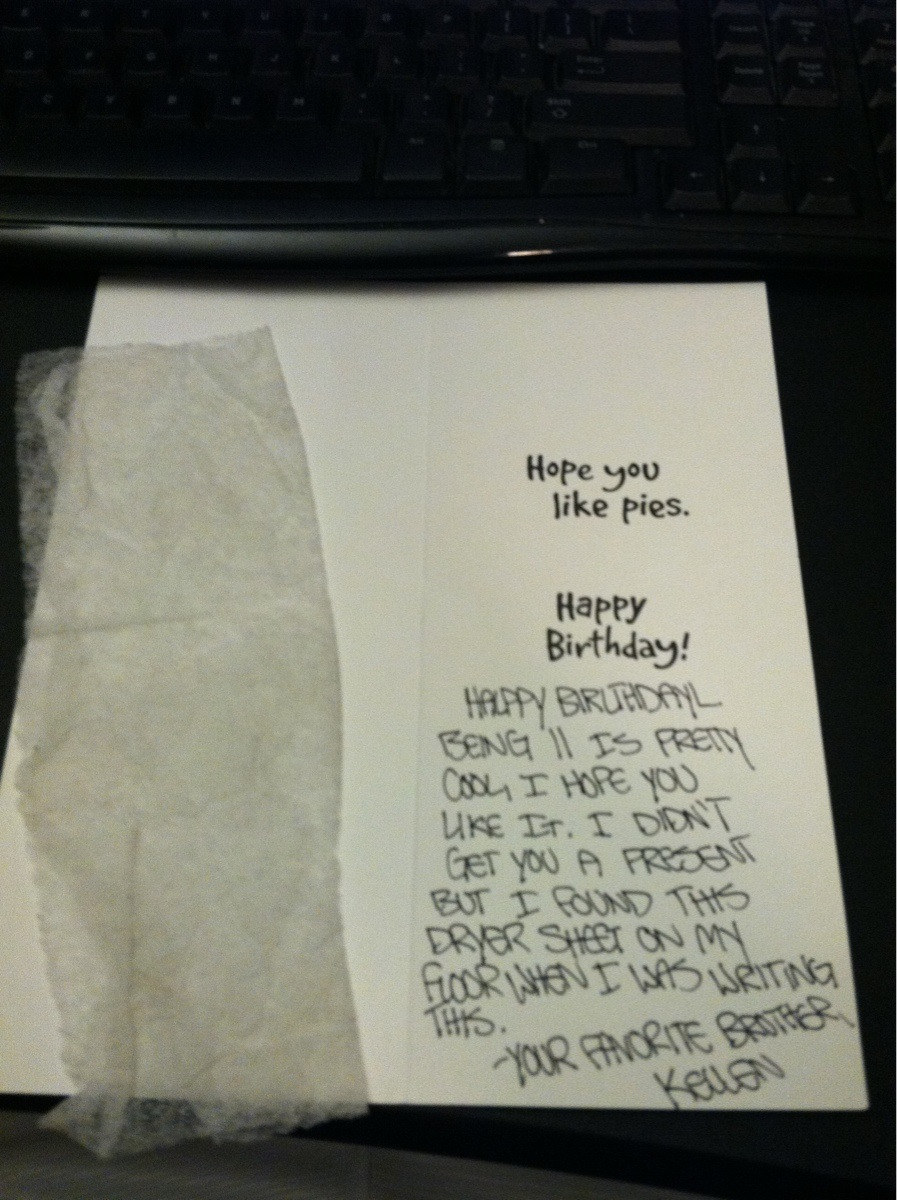 Hope you
like pies.
Happy
Birthday!
HALPPY BIRLTHDAYL
BEING 11 IS PRETTY
COOL, I HOPE YOU
LIKE IT. I DIDN'T
GET YOU A PRESENT
BUT I FOUND THIS
DRYER SHEET ON MY
FLOOR WHEN I WAS WRITING
THIS.
-YOUR FAVORITE BROTHER,
KELLEN